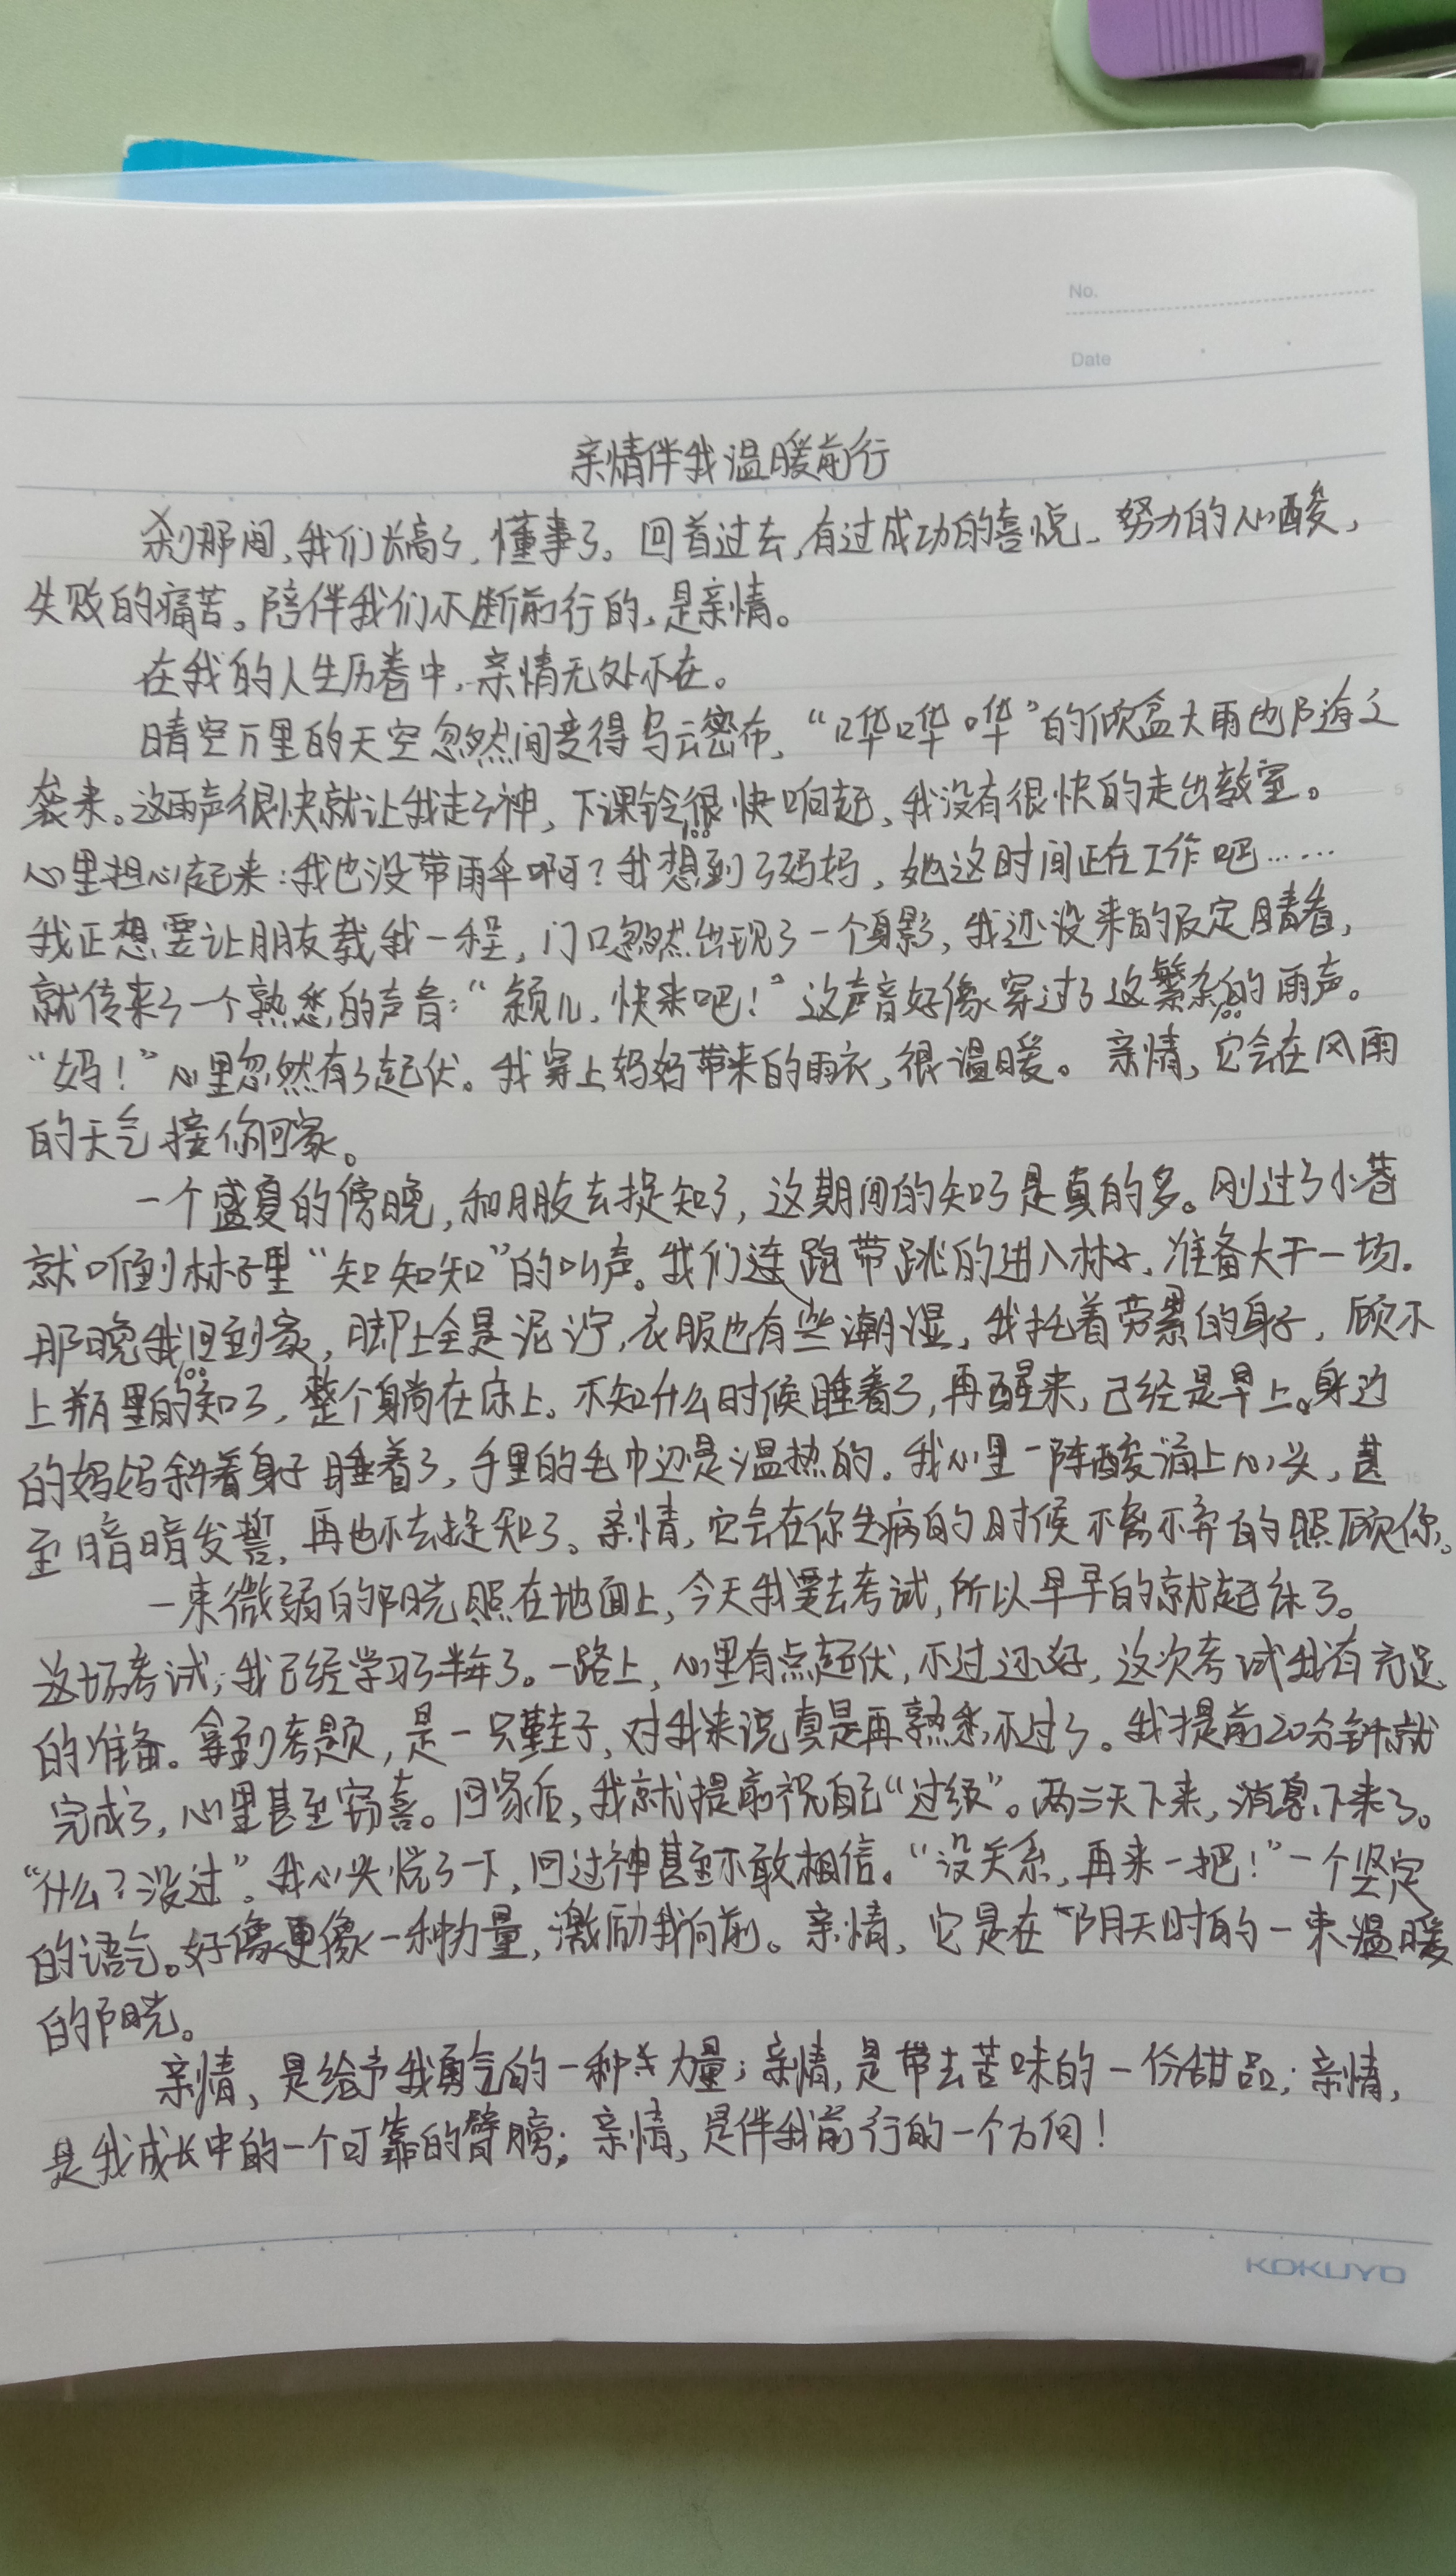 No.
Date
亲情伴我温暖前行
刹那间,我们长高了,懂事了。回首过去,有过成功的喜悦、努力的心酸,
失败的痛苦。陪伴我们不断前行的,是亲情。
在我的人生历卷中,亲情无处不在。
晴空万里的天空忽然间变得乌云密布,“哗哗哗”的倾盆大雨也随之
袭来。这雨声很快就让我走了神,下课铃很快响起,我没有很快的走出教室。
心里担心起来:我也没带雨伞啊?我想到了妈妈,她这时间正在工作吧……
我正想要让朋友载我一程,门口忽然出现了一个身影,我还没来的及定睛看,
就传来了一个熟悉的声音:“颖儿,快来吧!”这声音好像穿过了这繁杂的雨声。
“妈!”心里忽然有了起伏。我穿上妈妈带来的雨衣,很温暖。亲情,它会在风雨
的天气接你回家。
一个盛夏的傍晚,和朋友去捉知了,这期间的知了是真的多。刚过了小巷
就听到林子里“知知知”的叫声。我们连跑带跳的进入林子,准备大干一场.
那晚我回到家,脚上全是泥泞,衣服也有些潮湿,我托着劳累的身子,顾不
上瓶里的知了,整个身躺在床上。不知什么时候睡着了,再醒来,已经是早上。身边
的妈妈斜着身子睡着了,手里的毛巾还是温热的。我心里一阵酸涌上心头,甚
至暗暗发誓,再也不去捉知了。亲情,它会在你生病的时候不离不弃的照顾你。
一束微弱的阳光照在地面上,今天我要去考试,所以早早的就起床了。
这场考试,我已经学习了半年了。一路上,心里有点起伏,不过还好,这次考试我有充足
的准备。拿到考题,是一只鞋子,对我来说真是再熟悉不过了。我提前20分钟就
完成了,心里甚至窃喜。回家后,我就提前祝自己“过级”。两三天下来,消息下来了。
“什么?没过”。我心头慌了一下,回过神甚至不敢相信。“没关系,再来一把!”一个坚定
的语气。好像更像一种力量,激励我向前。亲情,它是在阴天时的一束温暖
的阳光。
亲情,是给予我勇气的一种力量;亲情,是带去苦味的一份甜品;亲情,
是我成长中的一个可靠的臂膀;亲情,是伴我前行的一个方向!
5
10
15
KOKUYO